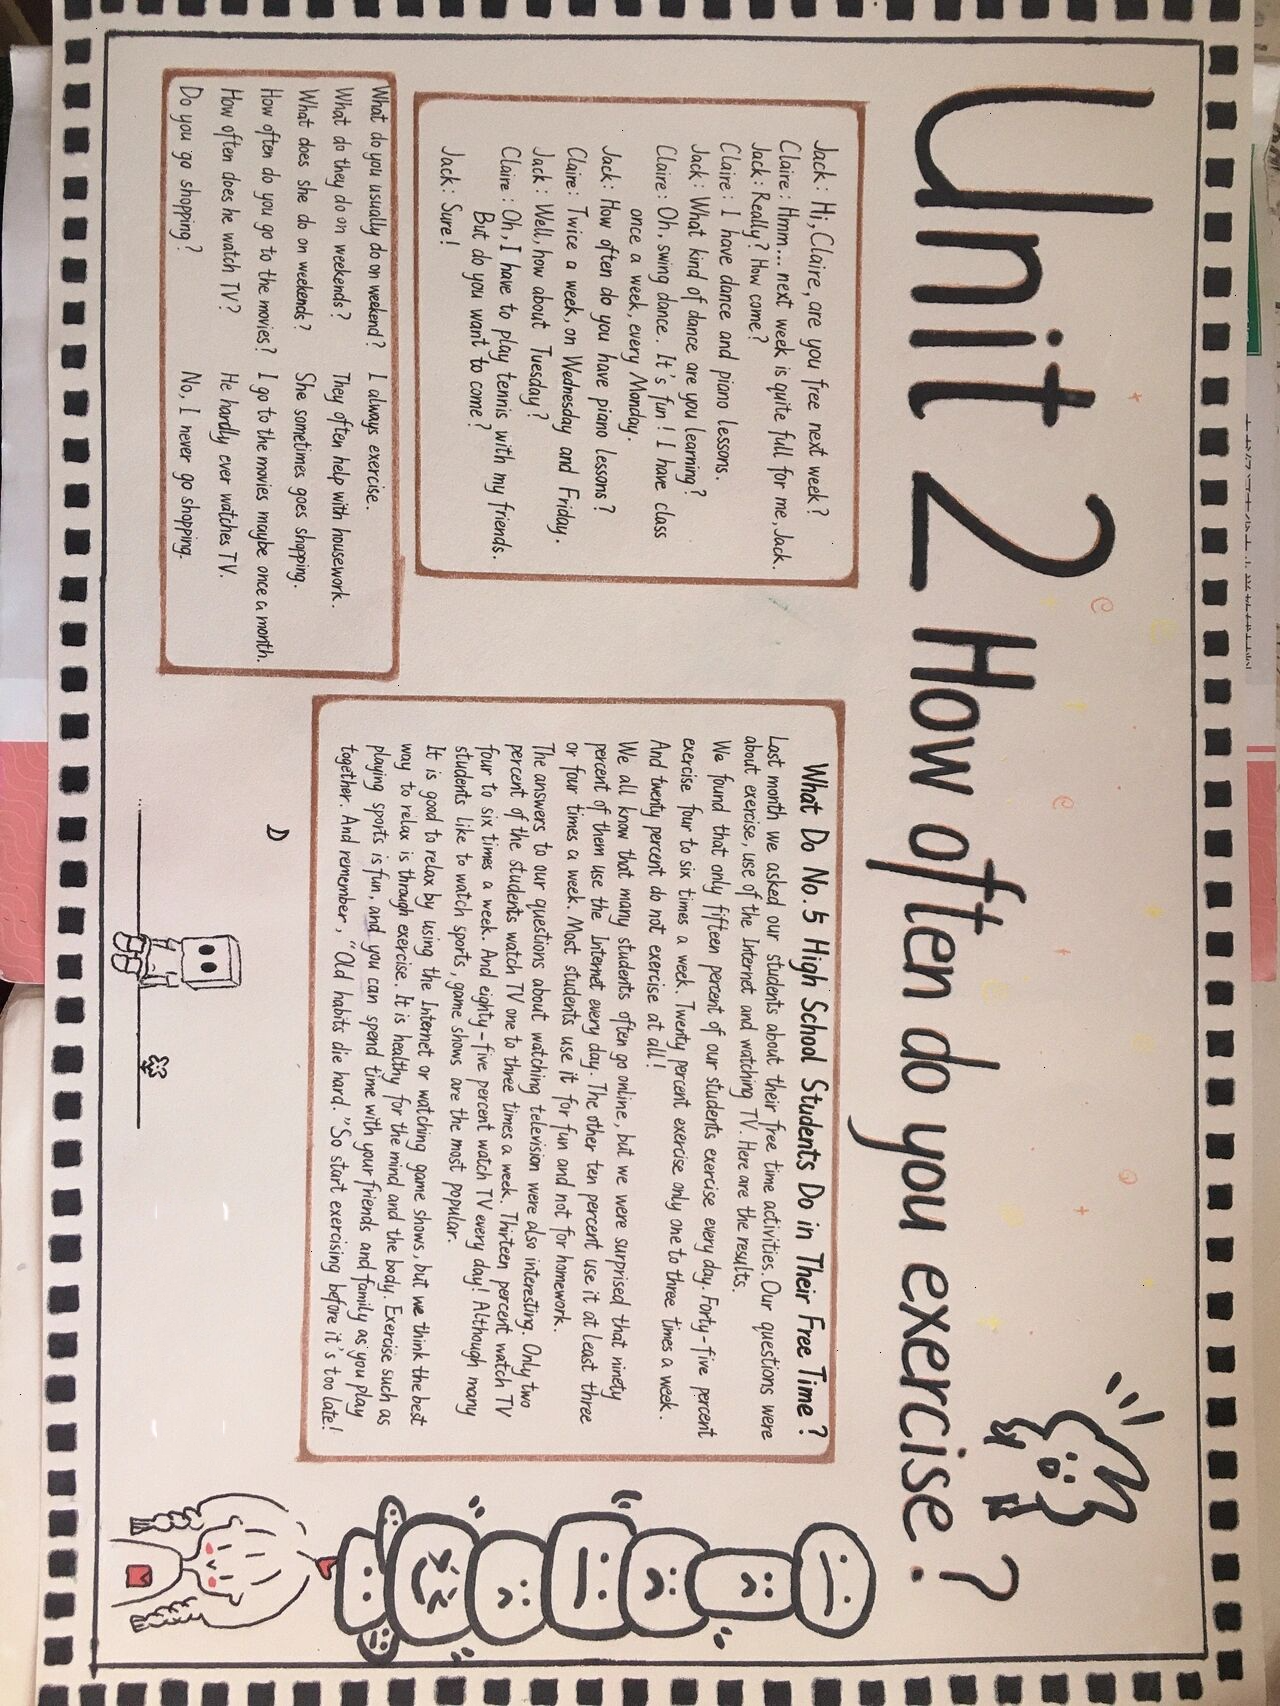 Unit 2 How often do you exercise?
Jack: Hi, Claire, are you free next week?
Claire: Hmm... next week is quite full for me, Jack.
Jack: Really? How come?
Claire: I have dance and piano lessons.
Jack: What kind of dance are you learning?
Claire: Oh, swing dance. It's fun! I have class
once a week, every Monday.
Jack: How often do you have piano lessons?
Claire: Twice a week, on Wednesday and Friday.
Jack: Well, how about Tuesday?
Claire: Oh, I have to play tennis with my friends.
But do you want to come?
Jack: Sure!
What do you usually do on weekend? I always exercise.
What do they do on weekends? They often help with housework.
What does she do on weekends? She sometimes goes shopping.
How often do you go to the movies? I go to the movies maybe once a month.
How often does he watch TV? He hardly ever watches TV.
Do you go shopping? No, I never go shopping.
What Do No.5 High School Students Do in Their Free Time?
Last month we asked our students about their free time activities. Our questions were
about exercise, use of the Internet and watching TV. Here are the results.
We found that only fifteen percent of our students exercise every day. Forty-five percent
exercise four to six times a week. Twenty percent exercise only one to three times a week.
And twenty percent do not exercise at all!
We all know that many students often go online, but we were surprised that ninety
percent of them use the Internet every day. The other ten percent use it at least three
or four times a week. Most students use it for fun and not for homework.
The answers to our questions about watching television were also interesting. Only two
percent of the students watch TV one to three times a week. Thirteen percent watch TV
four to six times a week. And eighty-five percent watch TV every day! Although many
students like to watch sports, game shows are the most popular.
It is good to relax by using the Internet or watching game shows, but we think the best
way to relax is through exercise. It is healthy for the mind and the body. Exercise such as
playing sports is fun, and you can spend time with your friends and family as you play
together. And remember, "Old habits die hard." So start exercising before it's too late!
D